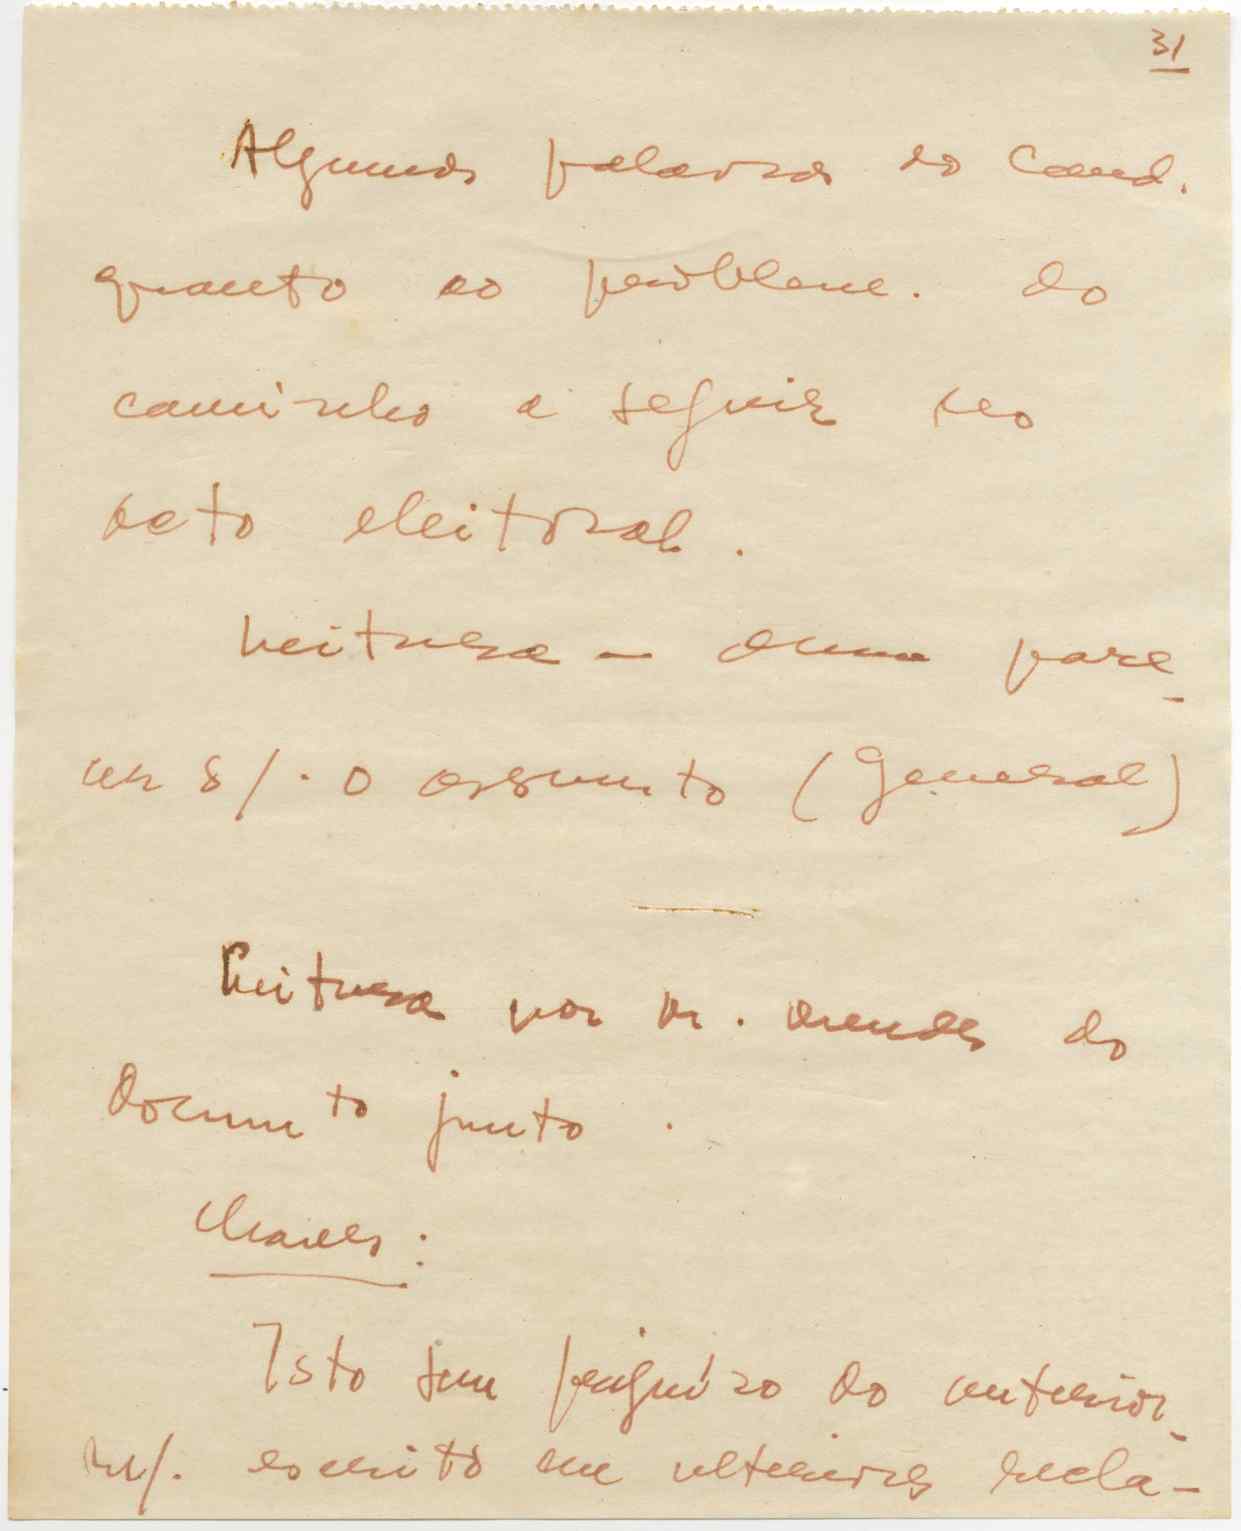 31
Algumas palavras do Cand.
quanto ao problema. do
caminho a seguir no
acto eleitoral.
Leitura – dum pare-
cer s/. o assunto (General)
Leitura por Dr. Arendes do
Documto junto.
Chaves:
Isto sem prejuizo do anterior-
m/. escrito em ulteriores recla-